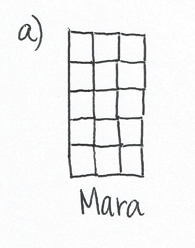 a)
Mara